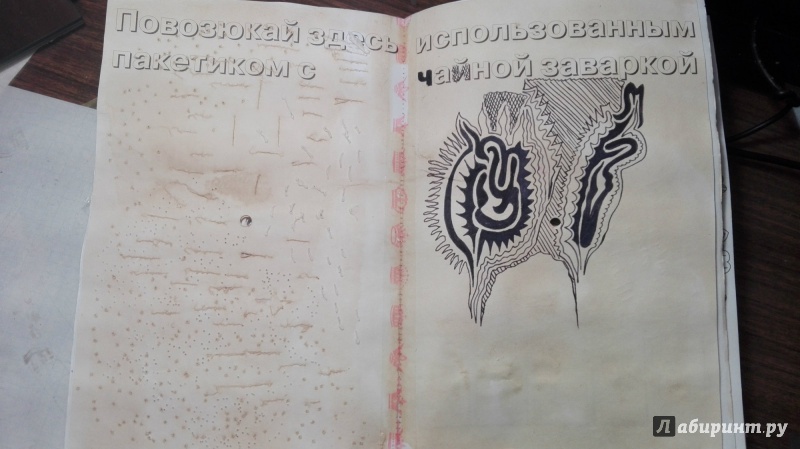 Повозюкай здесь использованным
пакетиком с чайной заваркой
Лабиринт.ру